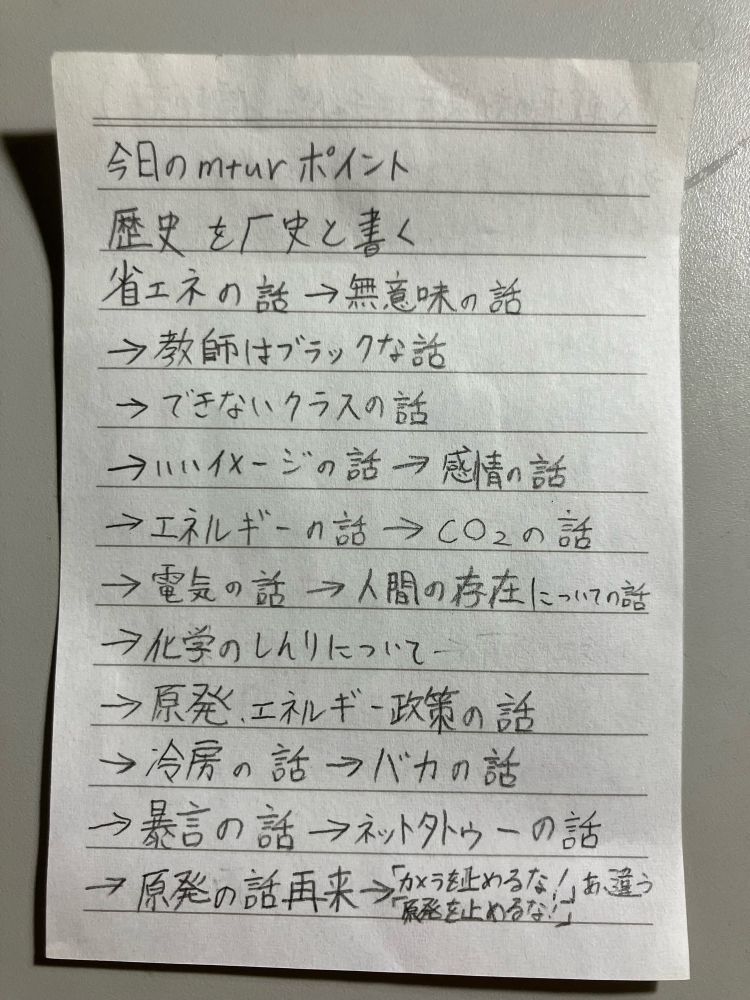 今日のmturポイント
歴史を厂史と書く
省エネの話→無意味の話
→教師はブラックな話
→できないクラスの話
→いいイメージの話→感情の話
→エネルギーの話→CO₂の話
→電気の話→人間の存在についての話
→化学のしんりについて
→原発、エネルギー政策の話
→冷房の話→バカの話
→暴言の話→ネットタトゥーの話
→原発の話再来→「カメラを止めるな!」あ、違う
「原発を止めるな!」